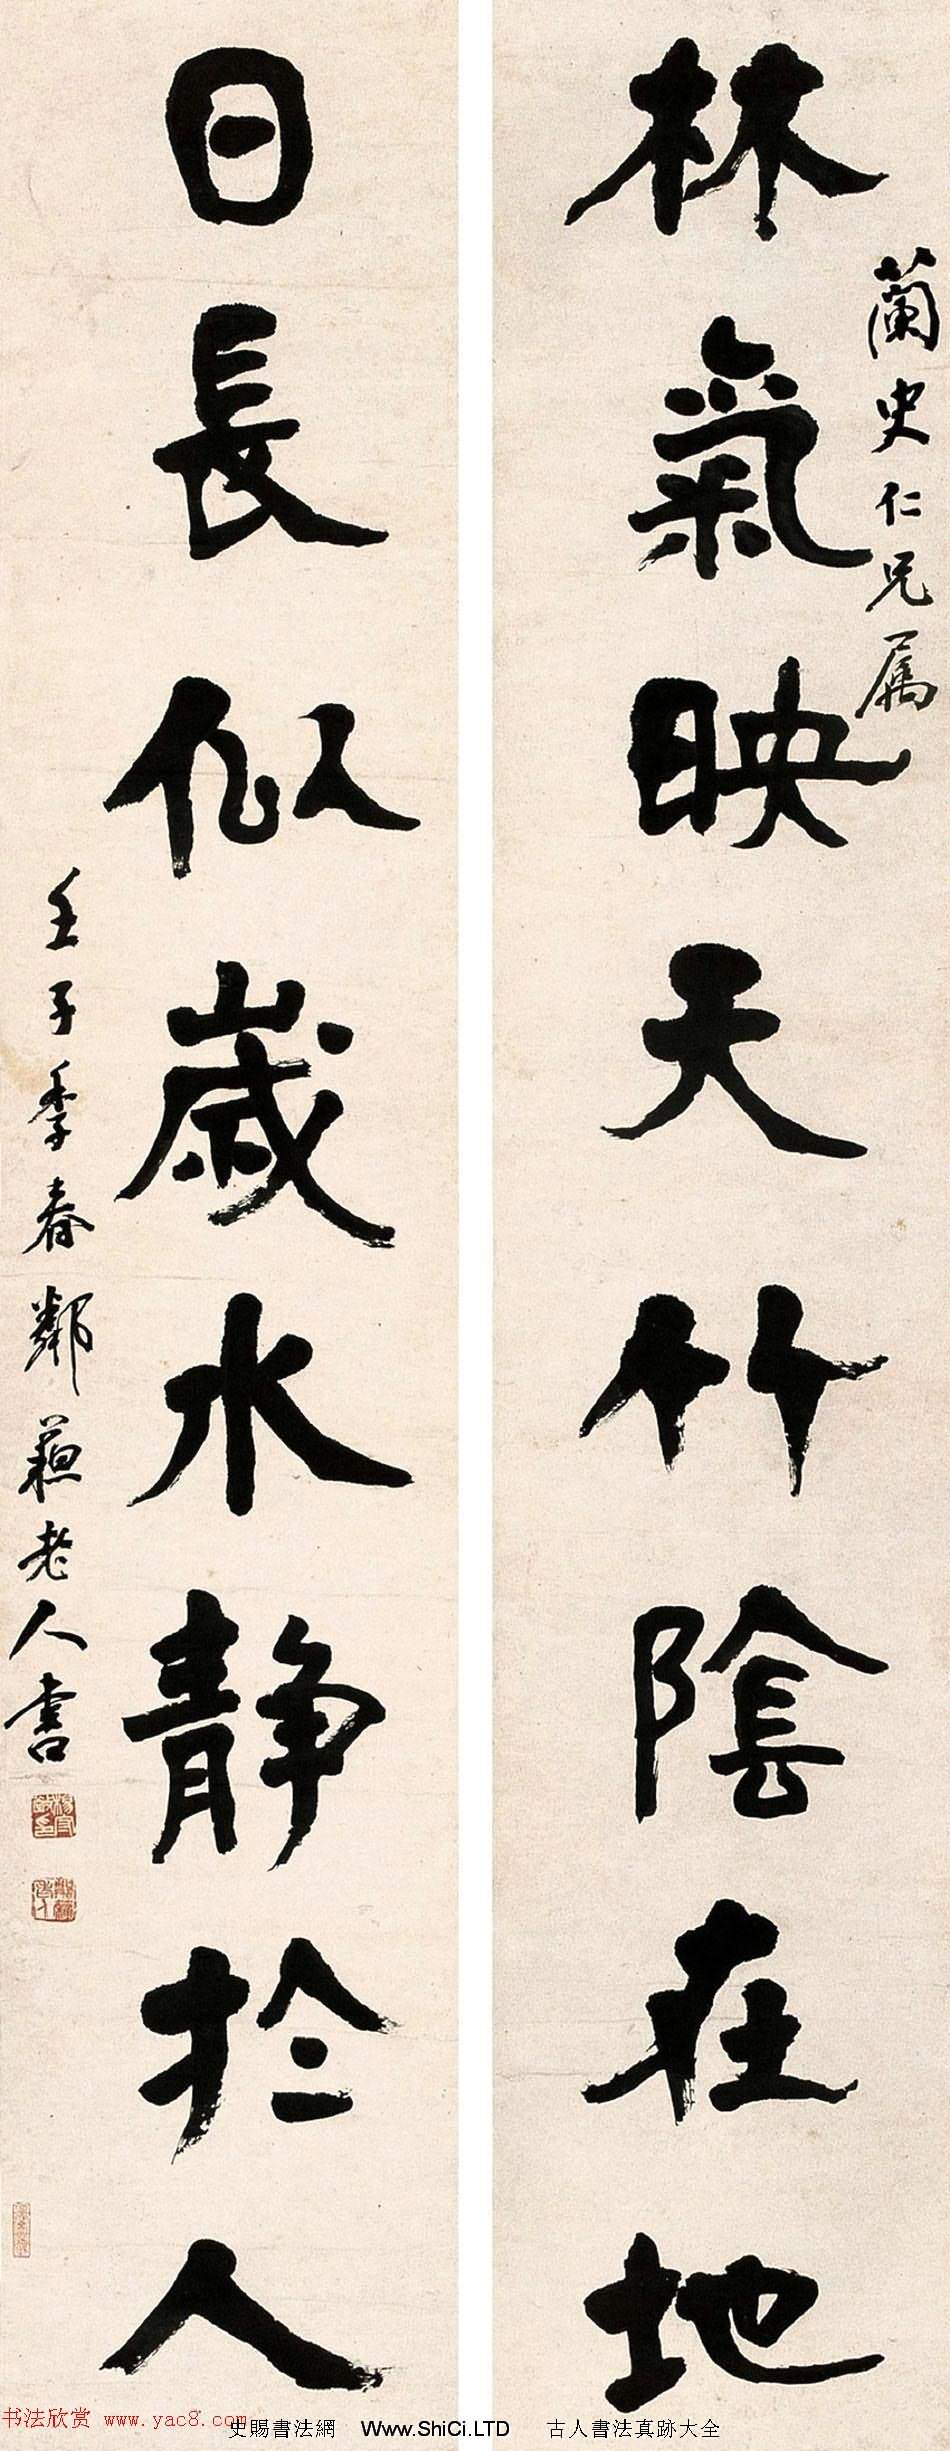 蘭史仁兄属
林氣映天竹陰在地
日長似歲水靜於人
壬子季春鄰蘇老人書
书法欣赏 www.yac8.com
史賜書法網 Www.ShiCi.LTD 古人書法真跡大全